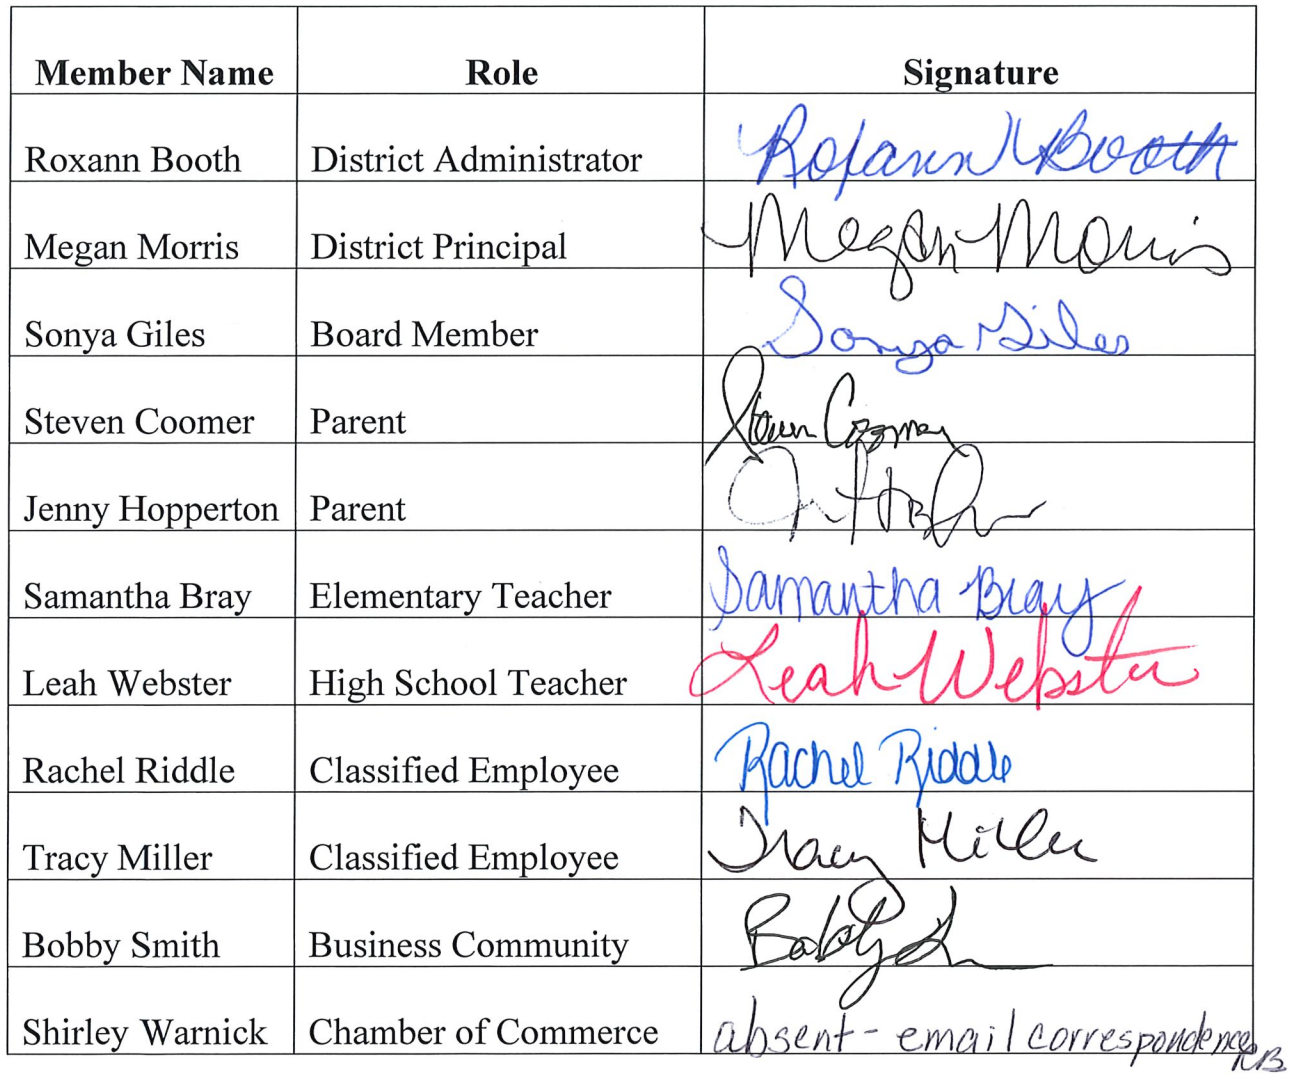 Member Name Role Signature
Roxann Booth District Administrator Roxann Booth
Megan Morris District Principal Megan Morris
Sonya Giles Board Member Sonya Giles
Steven Coomer Parent Steven Coomer
Jenny Hopperton Parent
Samantha Bray Elementary Teacher Samantha Bray
Leah Webster High School Teacher Leah Webster
Rachel Riddle Classified Employee Rachel Riddle
Tracy Miller Classified Employee Tracy Miller
Bobby Smith Business Community Bobby
Shirley Warnick Chamber of Commerce absent - email correspondence
RB